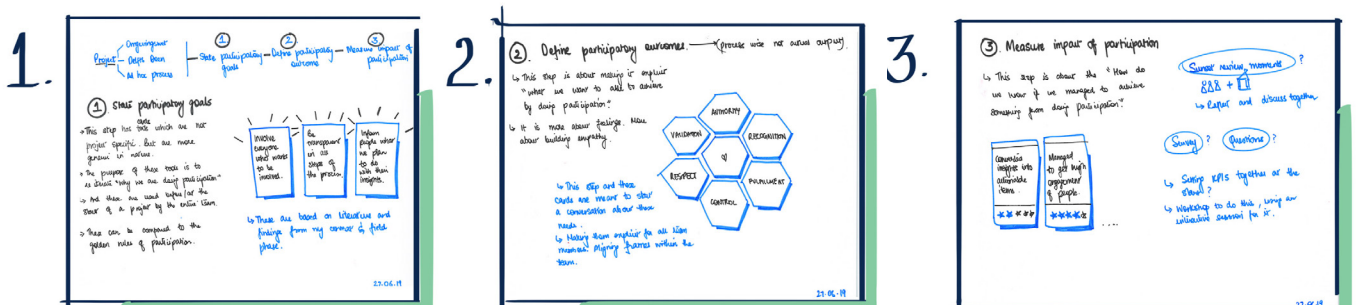 1.
Project
Ongoing
Delfts Doen
Ad hoc process
① ② ③
State participatory goals — Define participatory outcome — Measure impact of participation
① State participatory goals
↳ This step has cards which are not
project specific. But are more
general in nature.
↳ The purpose of these tools is to
"why we are doing participation"
↳ And these are used before/at the
start of a project by the entire team.
↳ These can be compared to the
golden rules of participation.
Involve
everyone
who wants
to be
involved.
Be
transparent
in all
steps of
the process.
Inform
people what
we plan
to do
with their
insights.
↳ These are based on literature and
findings from my context & field
phase.
27.06.19
2.
② Define participatory outcomes. → (process wise not actual output).
↳ This step is about making it explicit
"what we want to able to achieve
by doing participation?"
↳ It is more about feelings. More
about building empathy.
AUTHORITY
VALIDATION
RECOGNITION
RESPECT
FULFILMENT
CONTROL
↳ This step and these
cards are meant to start
a conversation about these
needs.
↳ Making them explicit for all team
members. Aligning frames within the
team.
27.06.19
3.
③ Measure impact of participation
↳ This step is about the "How do
we know if we managed to achieve
something from doing participation?"
Sunset review moments ?
↳ Reflect and discuss together
Survey ? Questions ?
Converting
insights into
actionable
items.
Managed
to get high
engagement
of people.
....
↳ Setting KPIS together at the
start?
↳ Workshop to do this, using an
interactive session for it.
27.06.19